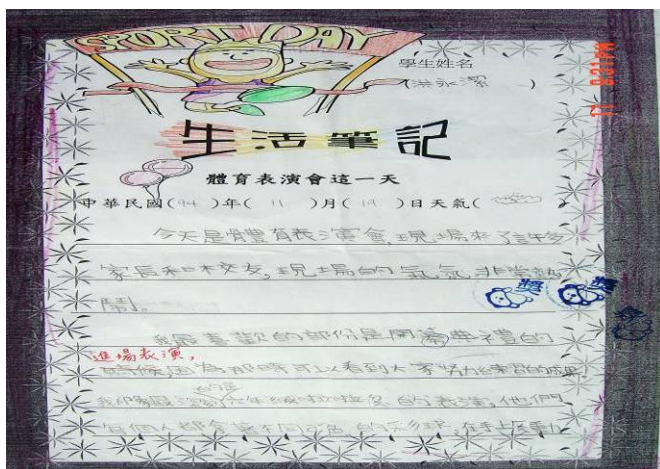 SPORT DAY
學生姓名
(洪永潔)
生活筆記
體育表演會這一天
中華民國(94)年(11)月(19)日天氣( )
今天是體育表演會,現場來了許多
家長和校友,現場的氣氣非常熱
鬧。
獎 獎
我最喜歡的部份是開幕典禮的
進場表演,
時候因為那時可以看到大家努力練習的成果
的是
六年級 的表演,他們
每個人都拿 不同色的彩球,在手上